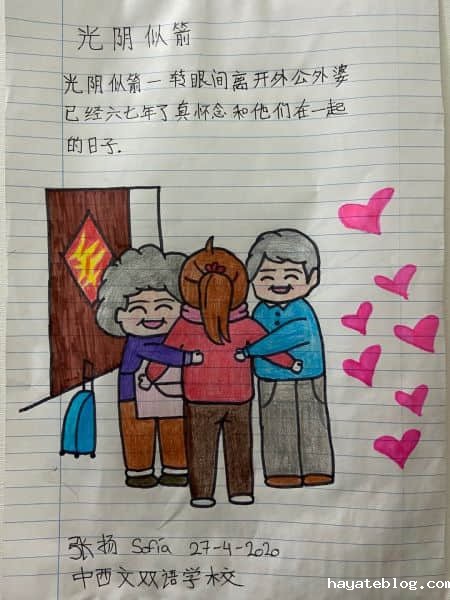 光阴似箭
光阴似箭一转眼间离开外公外婆
已经六七年了真怀念和他们在一起
的日子.
张扬 Sofía 27-4-2020
中西文双语学校
hayateblog.com